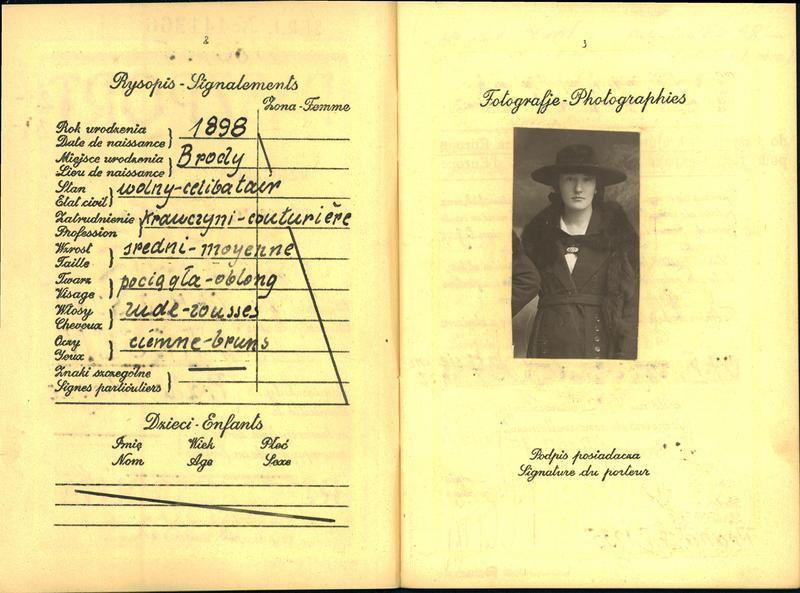 2
Rysopis - Signalements
Żona - Femme
Rok urodzenia
Date de naissance
1898
Miejsce urodzenia
Lieu de naissance
Brody
Stan
Etat civil
wolny-celibatair
Zatrudnienie
Profession
krawczyni-couturière
Wzrost
Taille
sredni-moyenne
Twarz
Visage
pociągła-oblong
Włosy
Cheveux
rude-rousses
Oczy
Yeux
ciemne-bruns
Znaki szczególne
Signes particuliers
Dzieci - Enfants
Imię Wiek Płeć
Nom Age Sexe
3
Fotografje - Photographies
Podpis posiadacza
Signature du porteur